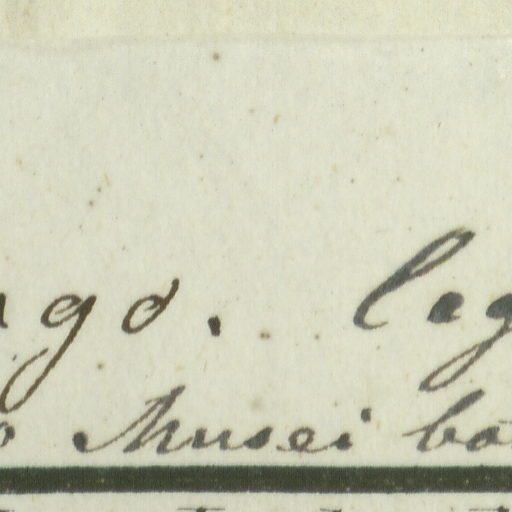 ago. leg
o Musei bo